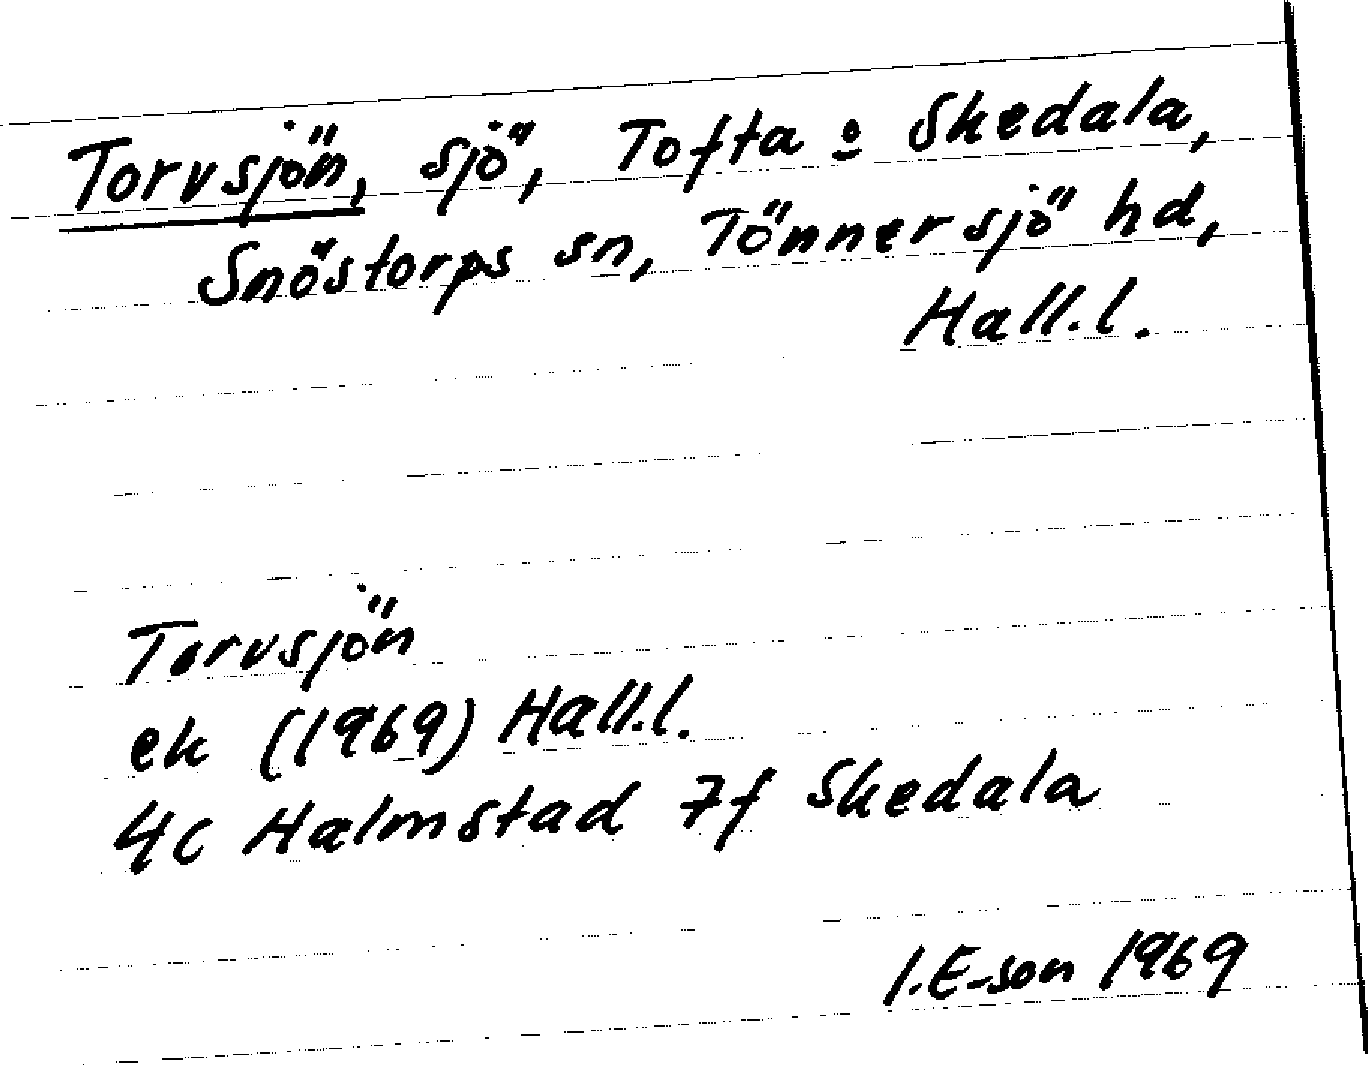 Torvsjön, sjö, Tofta o Skedala,
Snöstorps sn, Tönnersjö hd,
Hall.l.
Torvsjön
ek (1969) Hall.l.
4c Halmstad 7f Skedala
I.E-son 1969